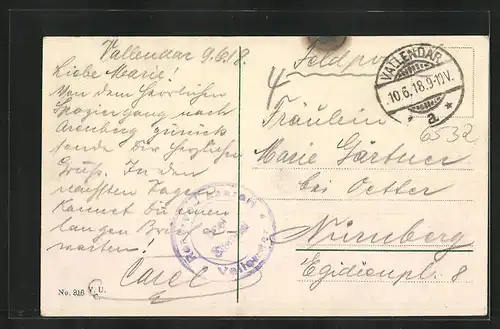 Vallendar 9.6.18.
Liebe Marie!
Von dem herrlichen
Spaziergang nach
Arenberg zurück
sende Dir herzlichen
Gruß. In den
nächsten Tagen
kannst Du einen
langen Brief er-
warten!
Carl
No. 316 V. U.
Feldpost
VALLENDAR
10.6.18.9-10V.
a
6532
Fräulein
Marie Gärtner
bei Oetter
Nürnberg
Egidienpl. 8
Vallendar